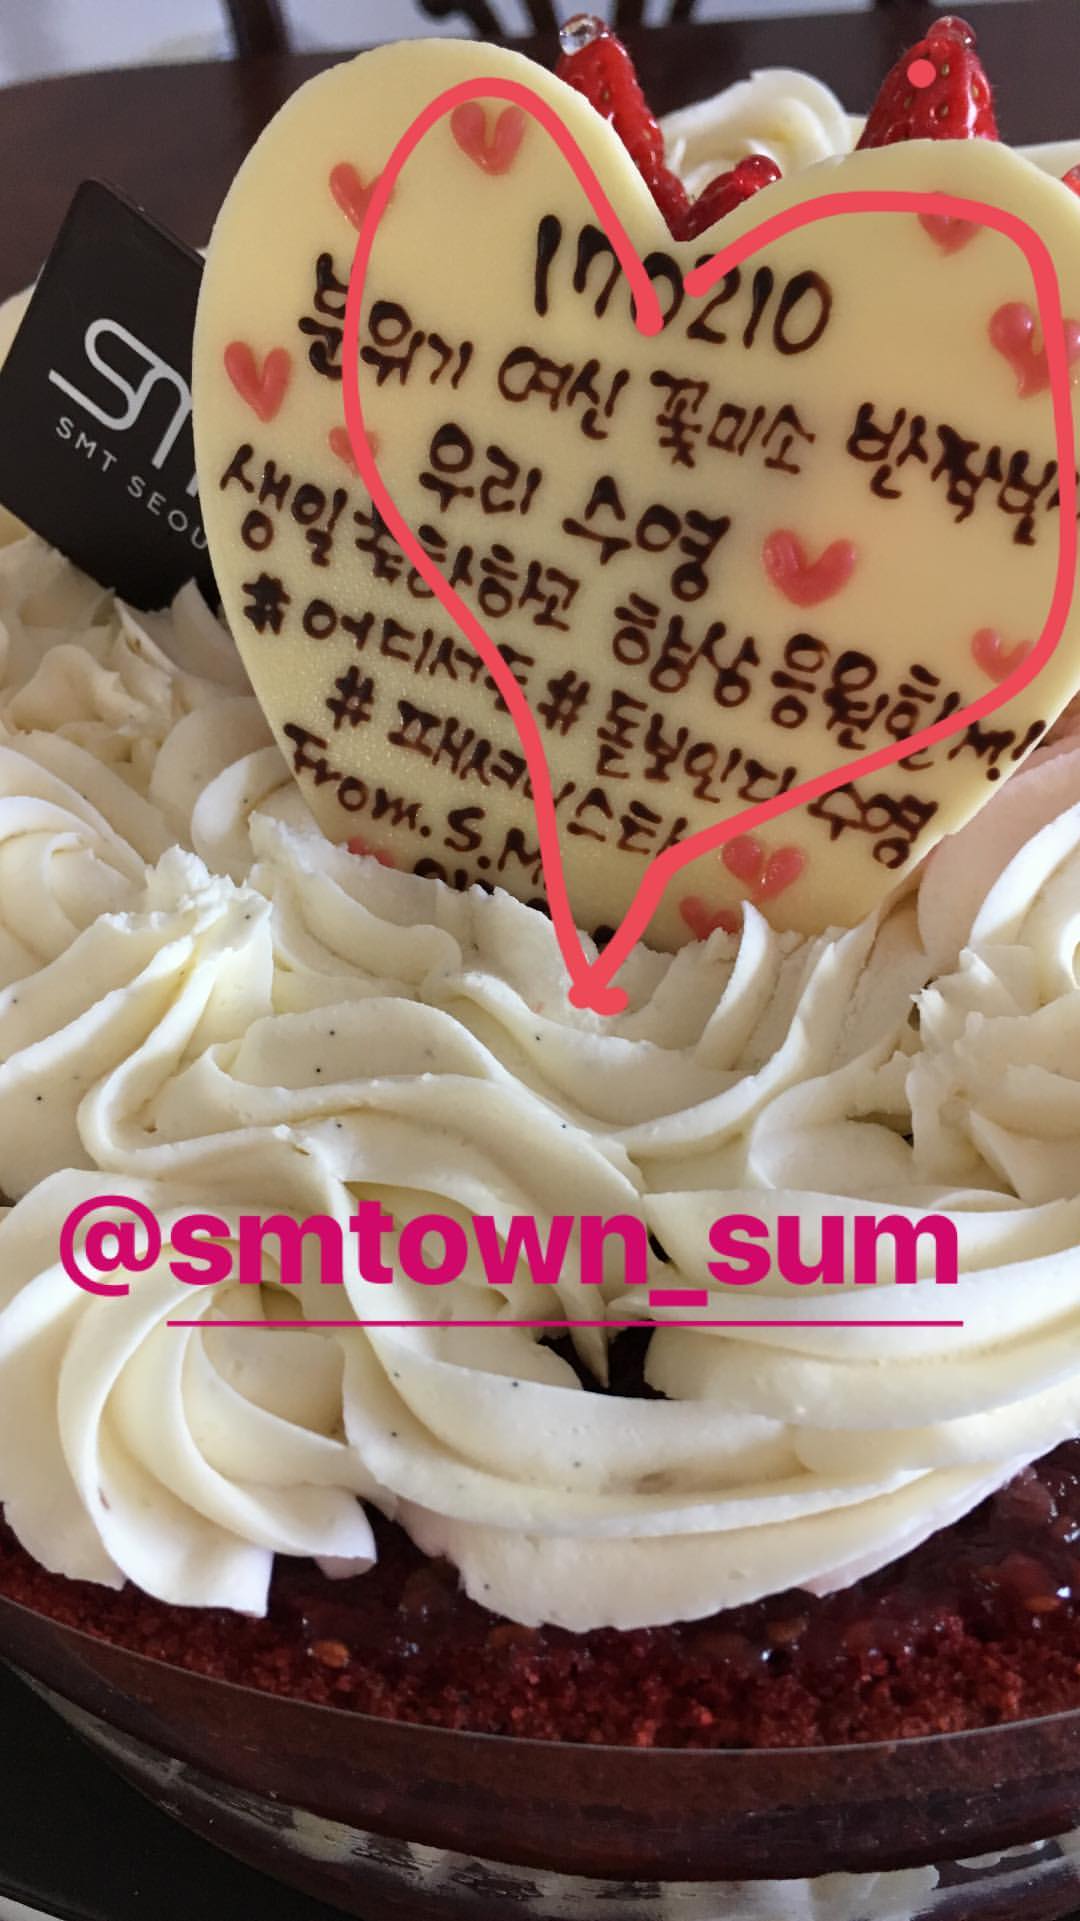 SM
SMT SEOU
170210
분위기 여신 꽃미소 반짝반
우리 수영
생일 축하하고 항상 응원할게!
#어디서든 #돋보인다 수영
#패셔니스타
From. S.M
@smtown_sum